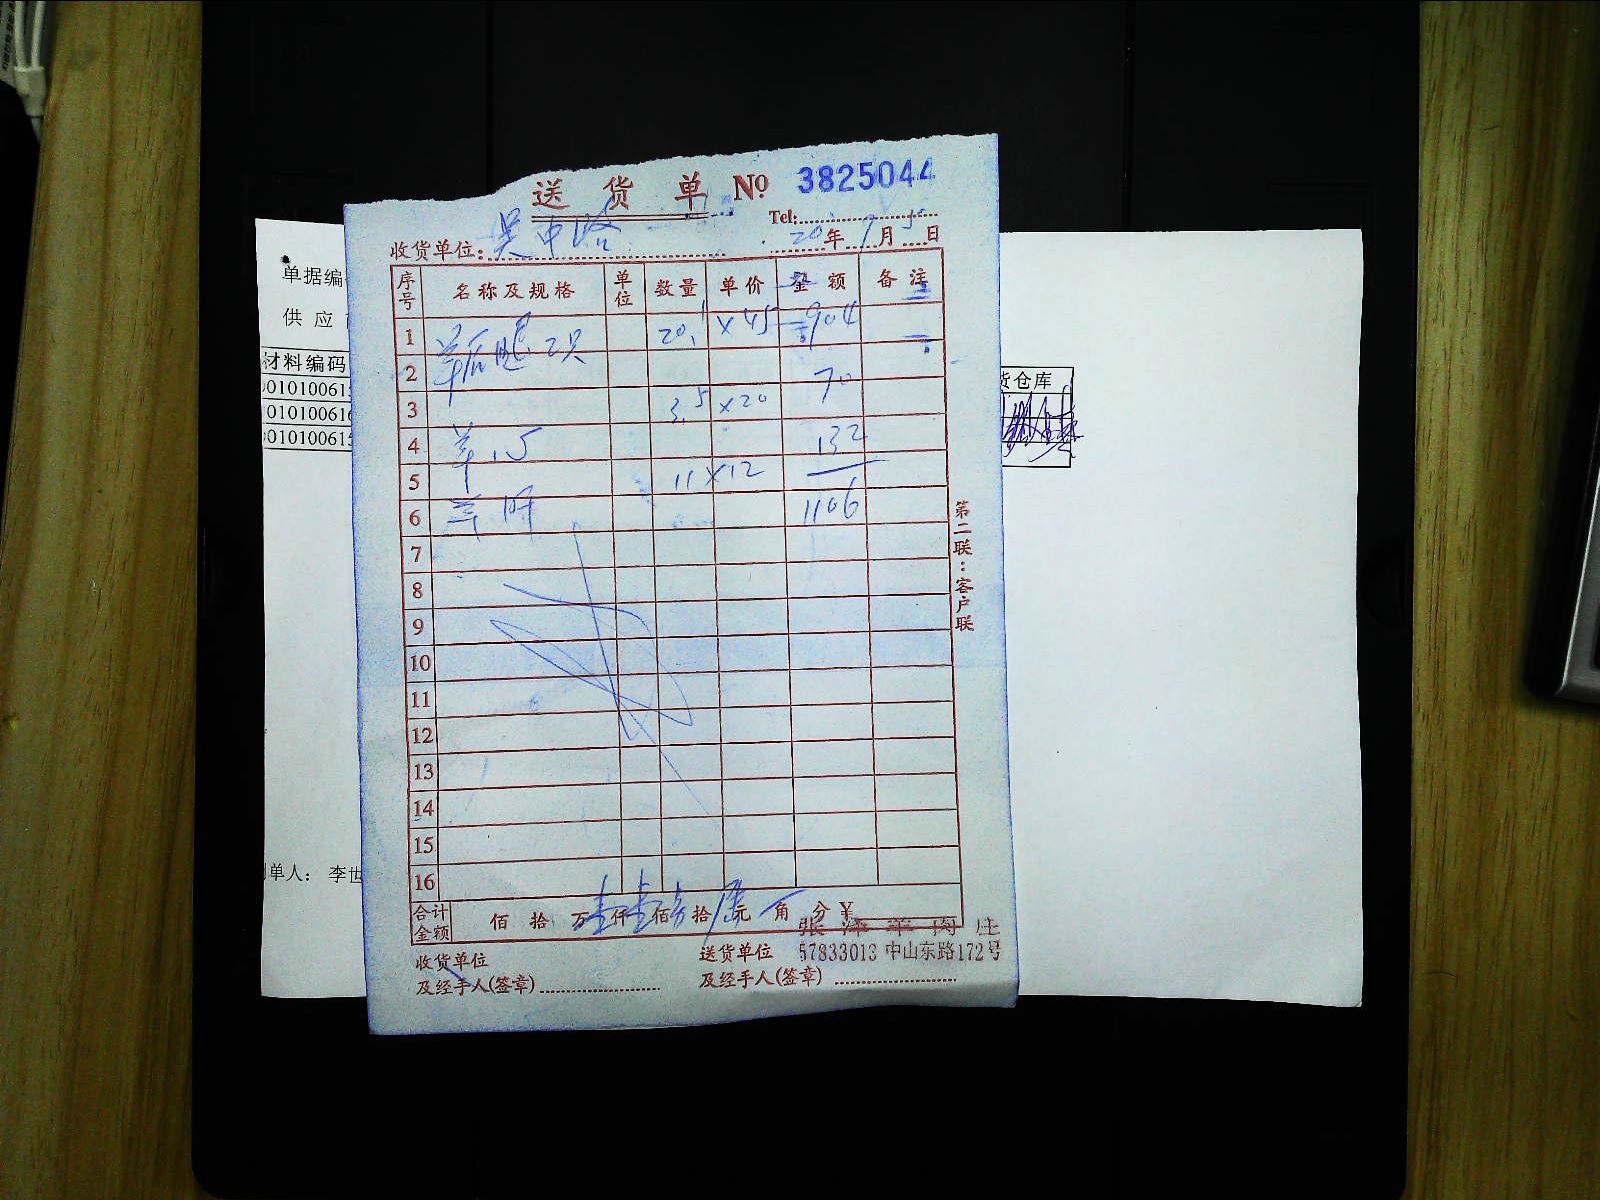 送 货 单 No 3825044
Tel:
收货单位: 吴中路 20 年 9 月 15 日
序号 名称及规格 单位 数量 单价 金额 备注
1 羊后腿 2只 20.1 × 45 = 904
2 70
3 3.5 × 20
4 羊心 132
5 11 × 12
6 羊肝 1106
7
8
9
10
11
12
13
14
15
16
合计金额 佰 拾 万 壹 仟 壹 佰 拾 元 角 分 ¥
张泽羊肉庄
收货单位 送货单位 57833013 中山东路172号
及经手人(签章) 及经手人(签章)
第二联:客户联
单据编
供 应
材料编码
0101006
0101006
0101006
货仓库
单人: 李世